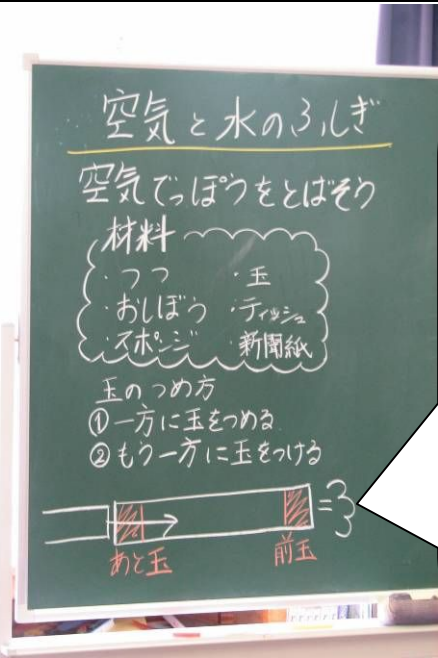 空気と水のふしぎ
空気でっぽうをとばそう
材料
・つつ ・玉
・おしぼう ・ティッシュ
・スポンジ ・新聞紙
玉のつめ方
①一方に玉をつめる
②もう一方に玉をつける
あと玉 前玉